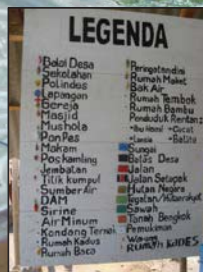 LEGENDA
Balai Desa
Sekolahan
Polindes
Lapangan
Gereja
Masjid
Mushola
Pon Pes
Makam
Pos kamling
Jembatan
Titik kumpul
Sumber Air
DAM
Sirine
Air Minum
Kandang Ternak
Rumah Kadus
Rumah Baca
Peringatan dini
Rumah Maket
Bak Air
Rumah Tembok
Rumah Bambu
Penduduk Rentan
Ibu Hamil
Cacat
Lansia
Balita
Sungai
Batas Desa
Jalan
Jalan Setapak
Hutan Negara
Sawah
Tanah Bengkok
Pemukiman
Warung
RUMAH KADES